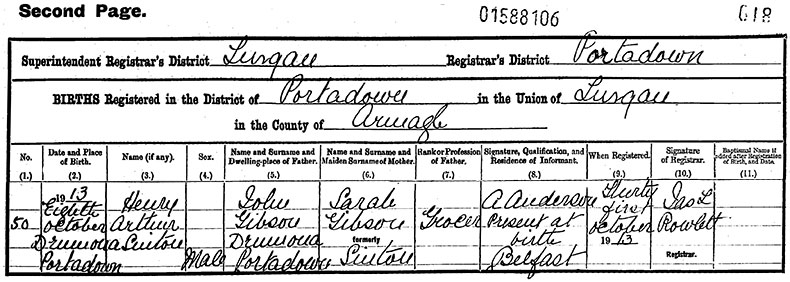 Second Page.
01588106
618
Superintendent Registrar's District Lurgan Registrar's District Portadown
BIRTHS Registered in the District of Portadown in the Union of Lurgan
in the County of Armagh
No. Date and Place of Birth. Name (if any). Sex. Name and Surname and Dwelling-place of Father. Name and Surname and Maiden Surname of Mother. Rank or Profession of Father. Signature, Qualification, and Residence of Informant. When Registered. Signature of Registrar. Baptismal Name if added after Registration of Birth, and Date.
(1.) (2.) (3.) (4.) (5.) (6.) (7.) (8.) (9.) (10.) (11.)
1913 Henry John Sarah A Anderson Thirty Jas L
Eighth first
50 October Arthur Gibson Gibson Grocer Present at October Rowlett
Drumona Sinton Drumona formerly birth 1913
Portadown Male Portadown Sinton Belfast Registrar.